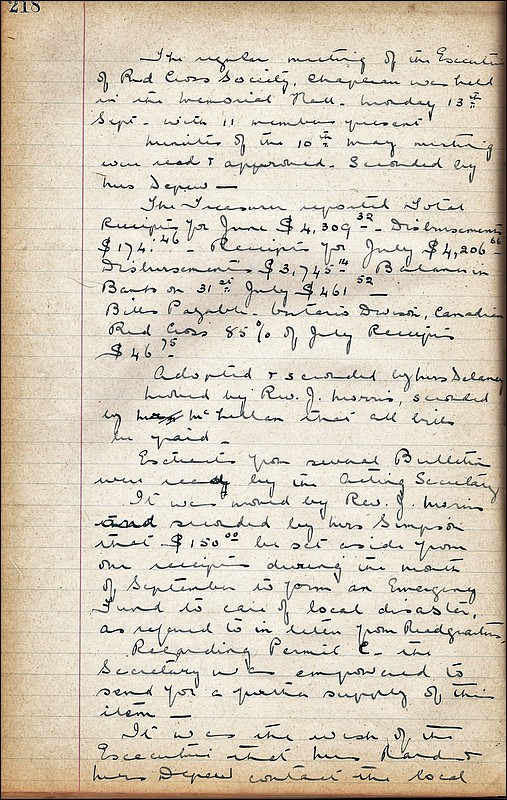 218
The regular meeting of the Executive
of Red Cross Society, Chapleau was held
in the Memorial Hall - Monday 13th
Sept - with 11 members present
Minutes of the 10th May meeting
were read & approved. Seconded by
Mrs Depew —
The Treasurer reported Total
Receipts for June $4,309.32 - Disbursements
$174.46 - Receipts for July $4,206.66
Disbursements $3,745.14 Balance in
Bank on 31st July $461.52 —
Bills Payable - Ontario Division, Canadian
Red Cross 85% of July Receipts
$46.75 -
Adopted & seconded by Mrs Delaney
Moved by Rev. J. Morris, seconded
by Mc Lellan that all bills
be paid -
Extracts from several Bulletins
were read by the Acting Secretary
It was moved by Rev. J. Morris
and seconded by Mrs Simpson
that $150.00 be set aside from
our receipts during the month
of September to form an Emergency
Fund to care of local disaster,
as referred to in letter from Headquarters,
Regarding Permit C - the
Secretary was empowered to
send for a further supply of this
item —
It was the wish of the
Executive that Mrs
Mrs Depew contact the local